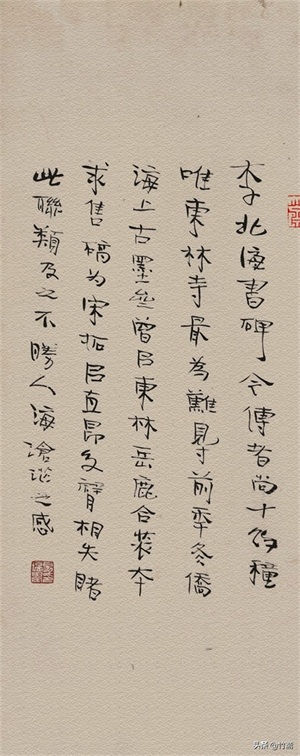 李北海書碑今傳者尚十餘種
唯東林寺最為難見前季冬僑
海上古墨曾㠯東林岳鹿合裝本
求售為宋拓㠯直昂交臂相失睹
此聯類及之不勝人海滄茫之感